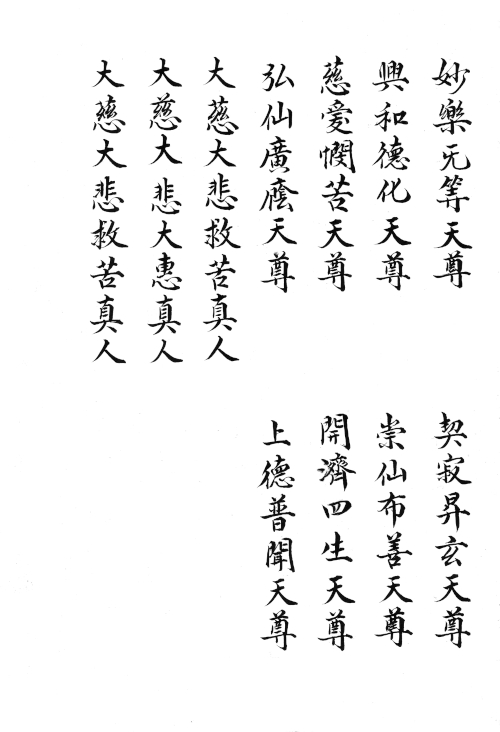 妙樂无等天尊
契寂昇玄天尊
興和德化天尊
崇仙布善天尊
慈愛憫苦天尊
開濟四生天尊
弘仙廣廕天尊
上德普聞天尊
大慈大悲救苦真人
大慈大悲大惠真人
大慈大悲救苦真人